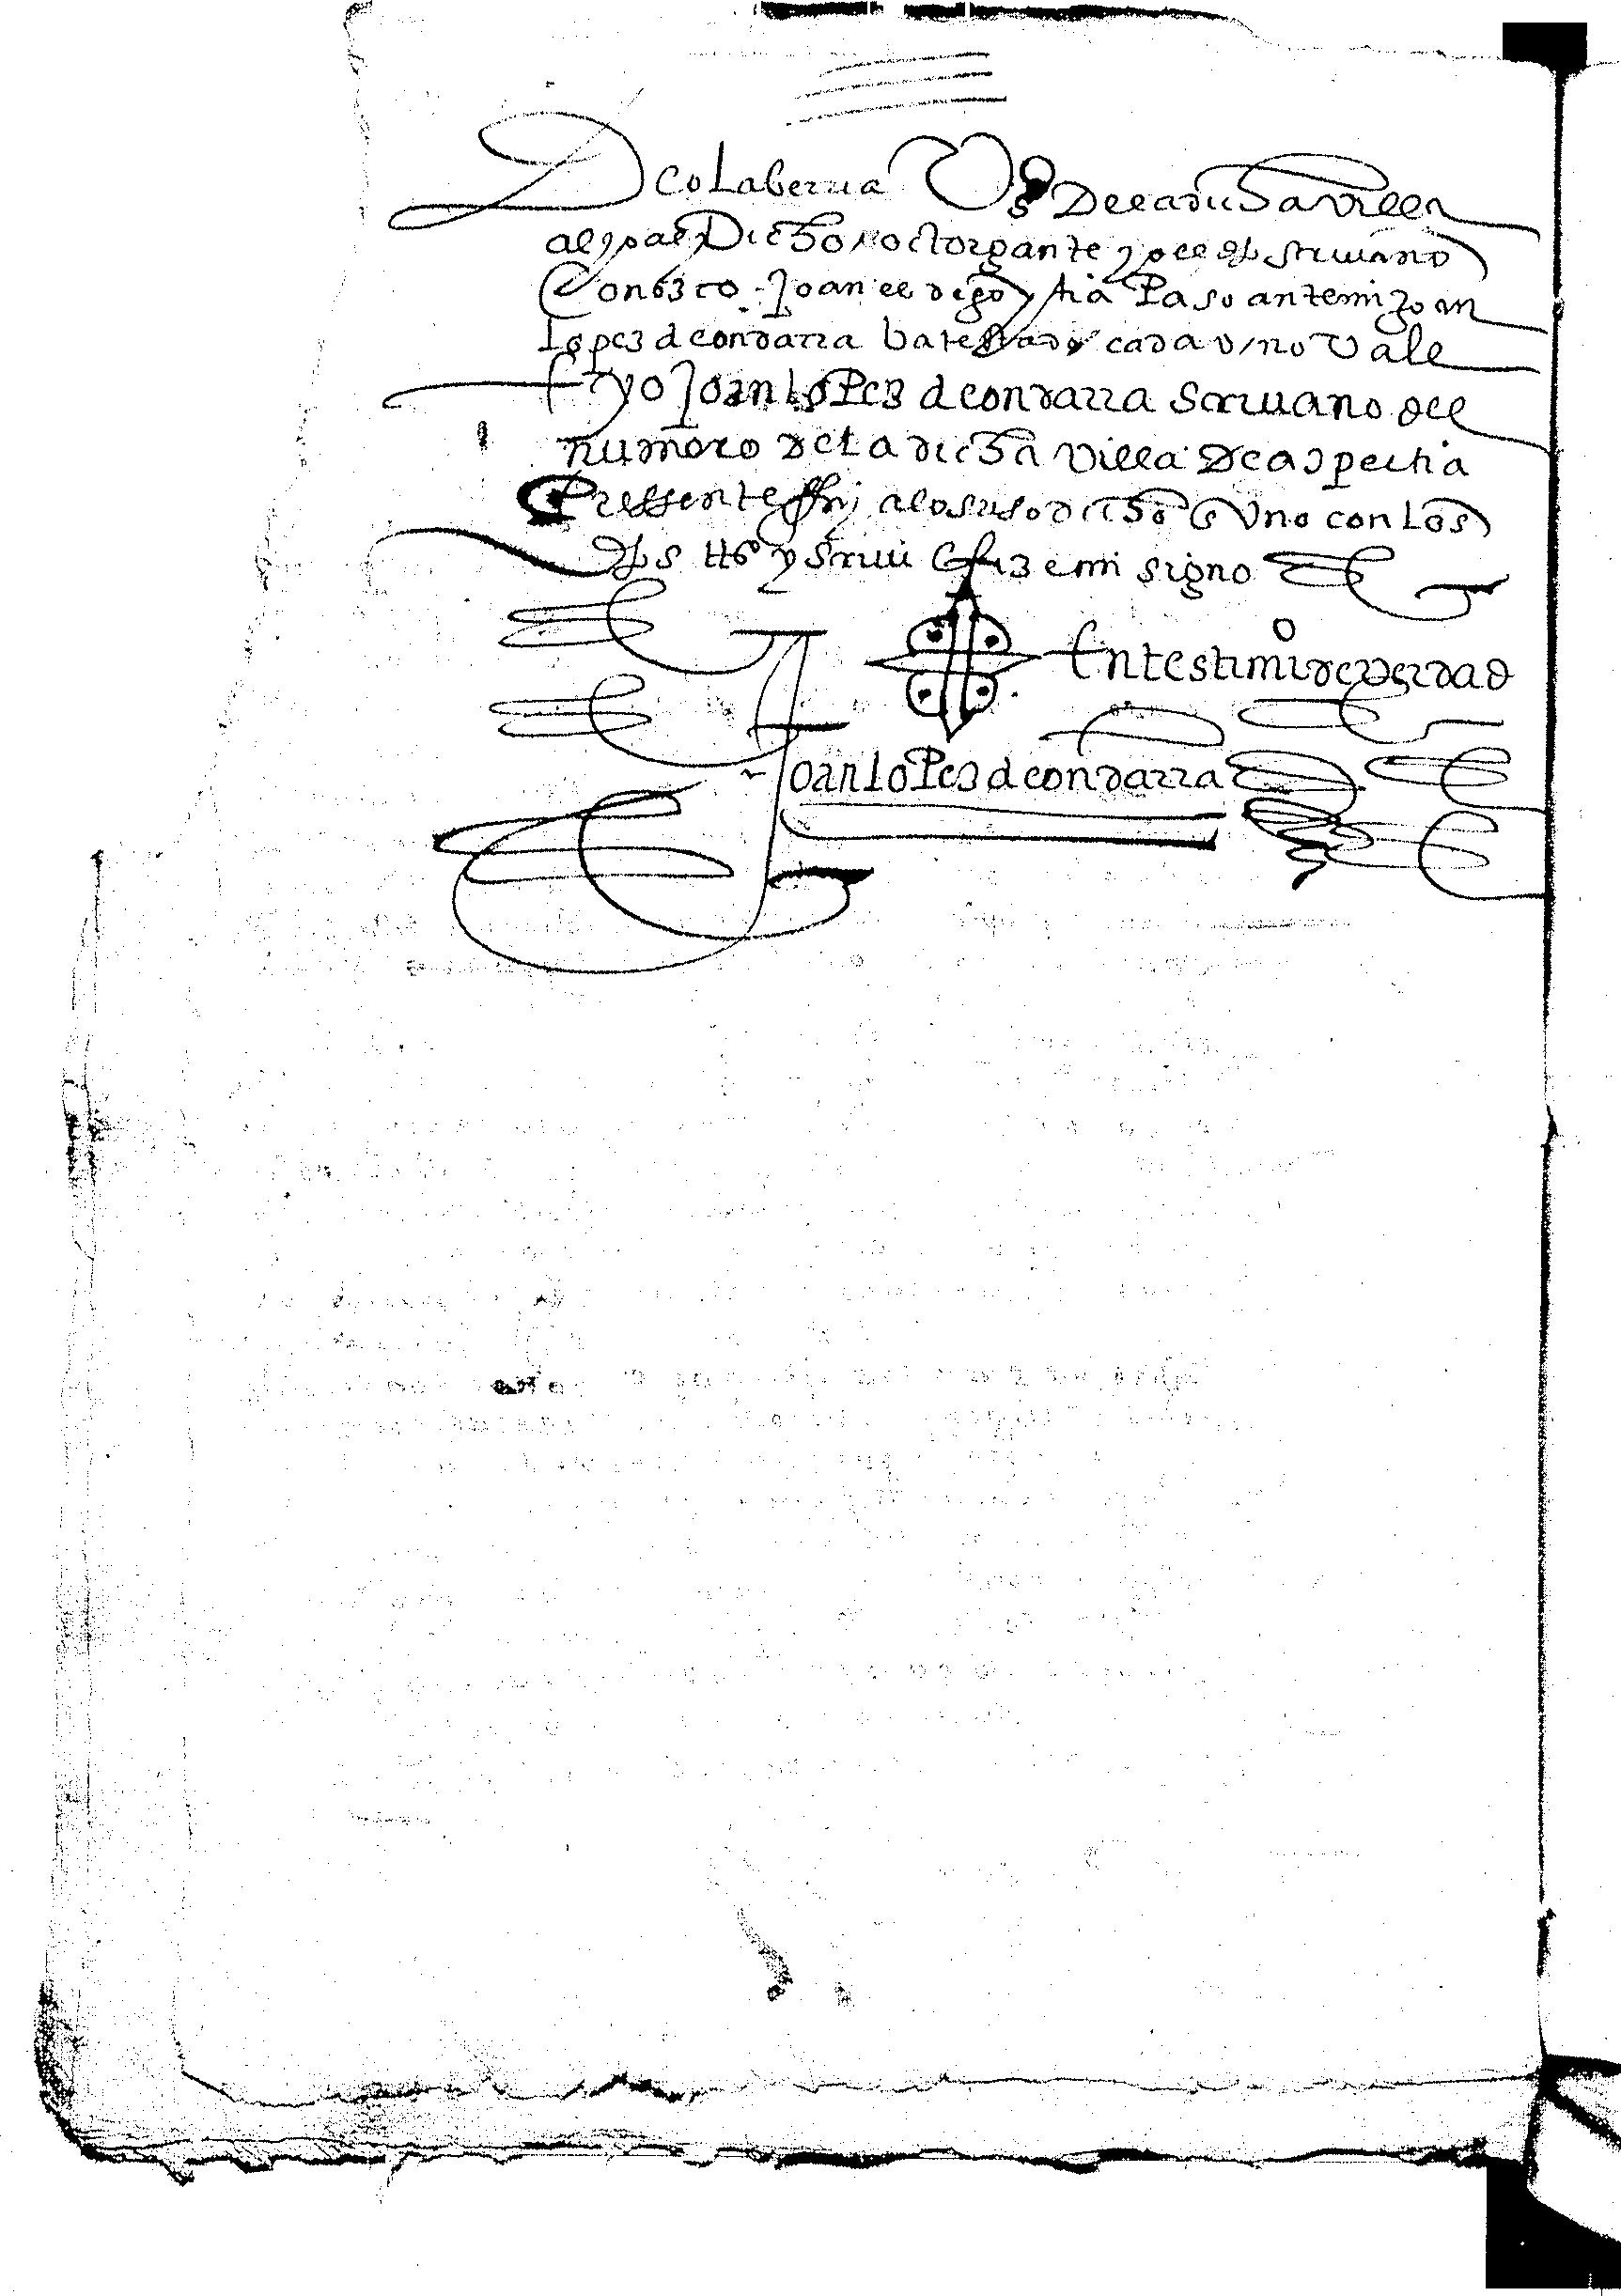 de olaberria Vºs de la dicha villa
al qual dicho otorgante yo el dho scriuano
conozco Joan el digo ytia Paso ante mi Joan
lopez de condarra ba testado cada vno Vale
E yo Joan loPez de condarra scriuano del
numero de la dicha villa de azpeitia
Pressente fuy a lo suso dicho en vno con los
dhs tºs y Scriui E fiz e mi signo
En testimiº de verdad
Joan loPez de condarra